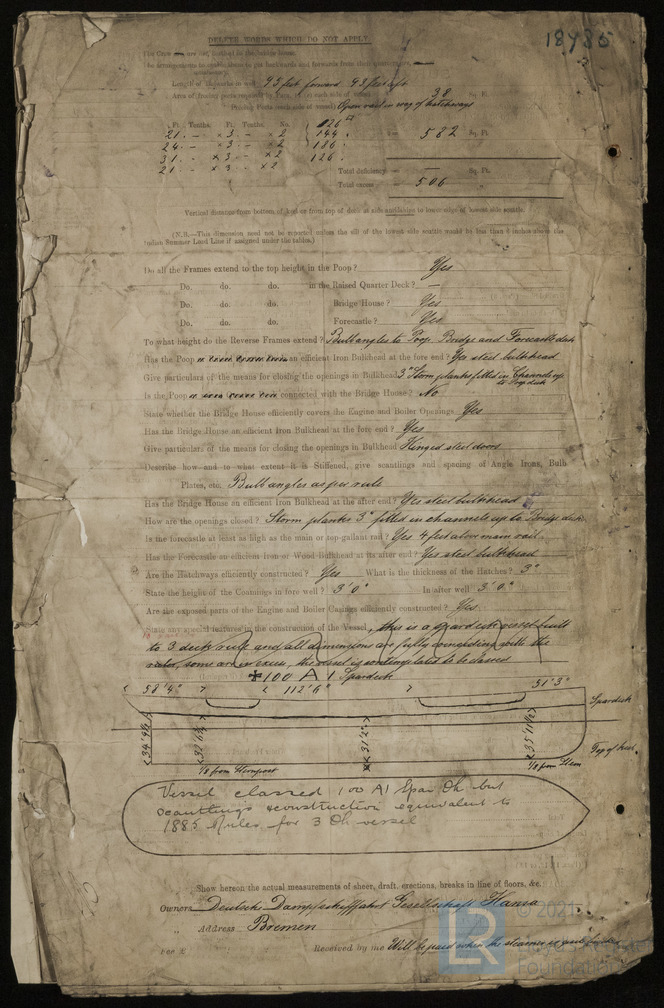 18735
DELETE WORDS WHICH DO NOT APPLY.
Length of Bulwarks in well 93 feet forward 93 feet aft
38 Sq. Ft.
Open rail in way of hatchways
Ft. Tenths. Ft. Tenths. No.
21 . - × 3 - × 2 126
24 . - × 3 - × 2 144 = 582 Sq. Ft.
31 . × 3 - × 2 186
21 . × 3 × 2 126
Total deficiency = — Sq. Ft.
Total excess = 506 "
Vertical distance from bottom of keel or from top of deck at side amidships to lower edge of lowest side scuttle.
(N.B.—This dimension need not be reported unless the sill of the lowest side scuttle would be less than 6 inches above the
Indian Summer Load Line if assigned under the tables.)
Do all the Frames extend to the top height in the Poop? Yes
Do. do. do. in the Raised Quarter Deck? —
Do. do. do. Bridge House? Yes
Do. do. do. Forecastle? Yes
To what height do the Reverse Frames extend? Bulb angles to Poop Bridge and Forecastle deck
Has the Poop an efficient Iron Bulkhead at the fore end? Yes steel bulkhead
Give particulars of the means for closing the openings in Bulkhead 3" Storm planks fitted in Channels up
to Poop deck
Is the Poop connected with the Bridge House? No
State whether the Bridge House efficiently covers the Engine and Boiler Openings Yes
Has the Bridge House an efficient Iron Bulkhead at the fore end? Yes
Give particulars of the means for closing the openings in Bulkhead Hinged steel doors
Describe how and to what extent it is Stiffened, give scantlings and spacing of Angle Irons, Bulb
Plates, etc. Bulb angles as per rule
Has the Bridge House an efficient Iron Bulkhead at the after end? Yes steel bulkhead
How are the openings closed? Storm planks 3" fitted in channels up to Bridge deck
Is the forecastle at least as high as the main or top-gallant rail? Yes 4 feet above main rail
Has the Forecastle an efficient Iron or Wood Bulkhead at its after end? Yes steel bulkhead
Are the Hatchways efficiently constructed? Yes What is the thickness of the Hatches? 3"
State the height of the Coamings in fore well? 3' 0" In after well 3' 0"
Are the exposed parts of the Engine and Boiler Casings efficiently constructed? Yes.
State any special features in the construction of the Vessel, this is a spardeck vessel built
to 3 deck rule and all dimensions are fully complying with the
rules, some are in excess, the vessel is contemplated to be classed
✠ 100 A 1 Spardeck
58' 4" 112' 6" 51' 3"
Spardeck
34' 9½" 31' 2" 35' 11½"
Top of keel
1/8 from Sternpost 1/8 from Stem
Vessel classed 100 A1 Spar Dk but
scantlings & construction equivalent to
1885 Rules for 3 Dk vessel
Show hereon the actual measurements of sheer, draft, erections, breaks in line of floors, &c.
Owners Deutsche Dampfschifffahrt Gesellschaft Hansa
Address Bremen
Fee £ Received by me Will be paid when the steamer is
LR
© 2021
Foundation